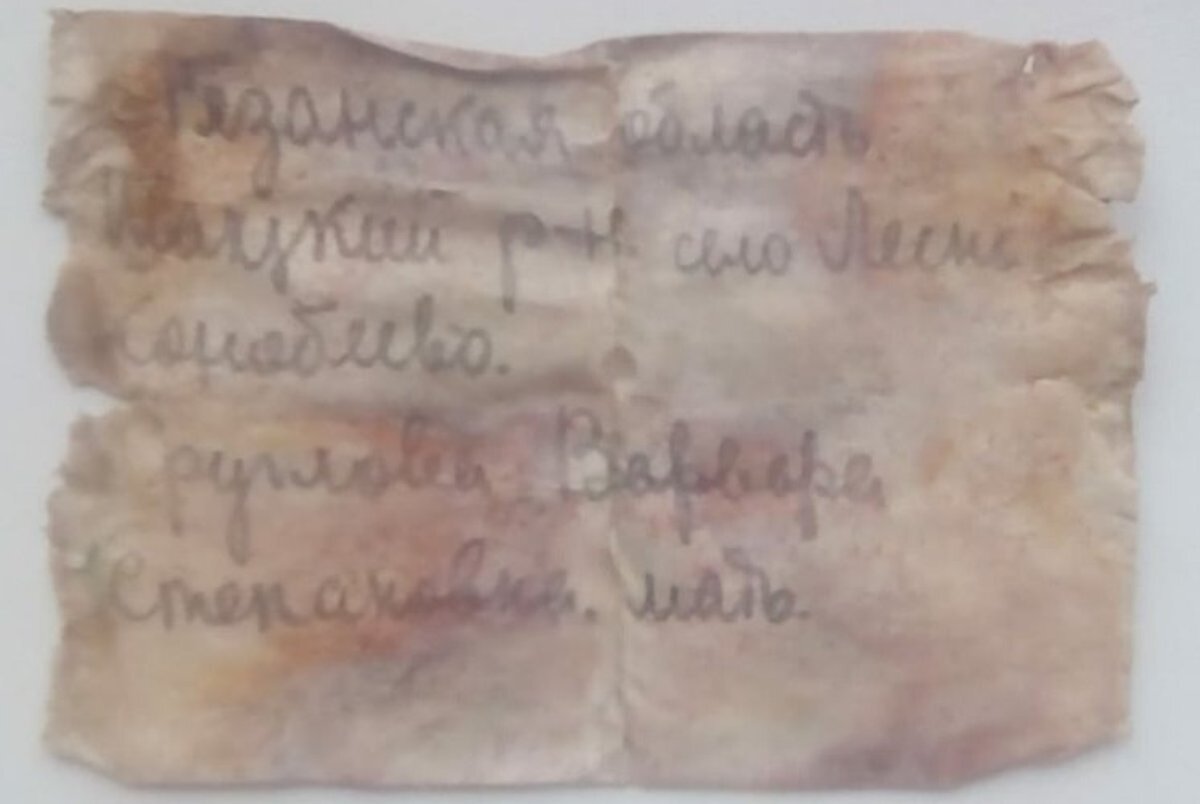 Рязанская область
Шацкий р-н село Лесн
Конобеево.
Варвара
Степановна. мать.